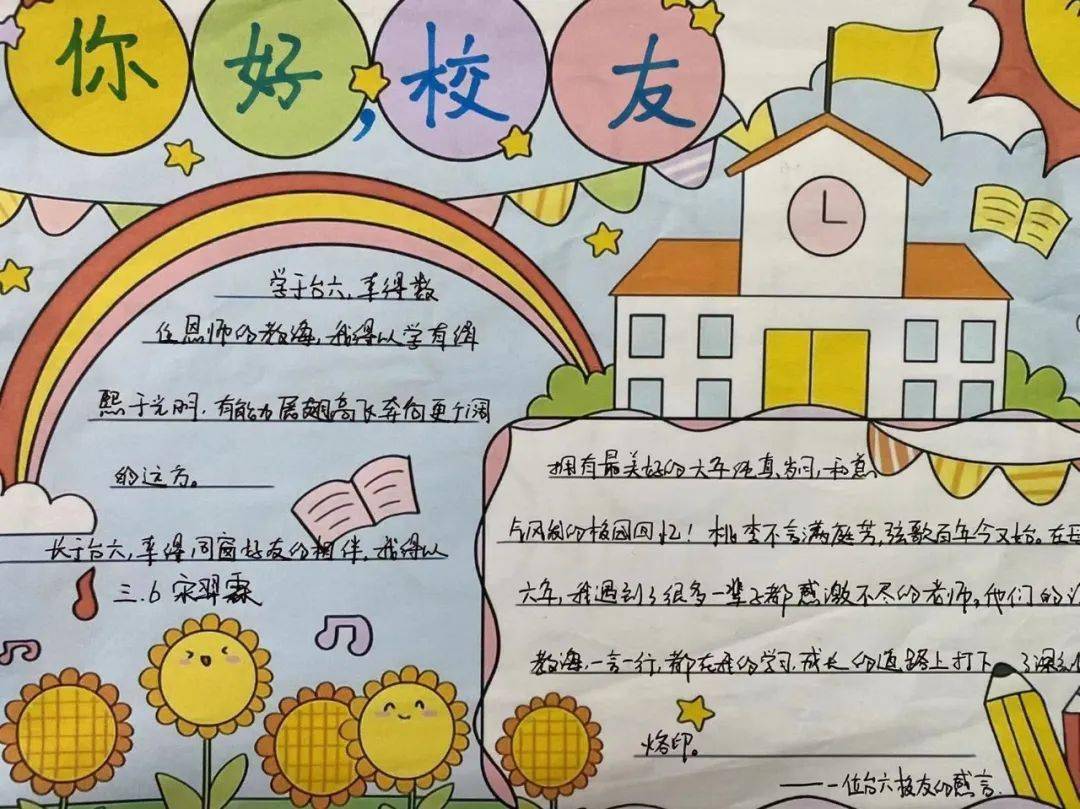 你好,校友
学于台六,幸得数
位恩师的教诲,我得以学有缉
熙于光明,有能力展翅高飞奔向更广阔
的远方。
长于台六,幸得同窗好友的相伴,我得以
三.6 宋羿霖
拥有最美好的六年纯真岁月,和意
气风发的校园回忆!桃李不言满庭芳,弦歌百年今又始。在母
六年,我遇到了很多一辈子都感激不尽的老师,他们的
教诲,一言一行,都在我的学习,成长的道路上打下了深刻
烙印。
——一位台六校友的感言